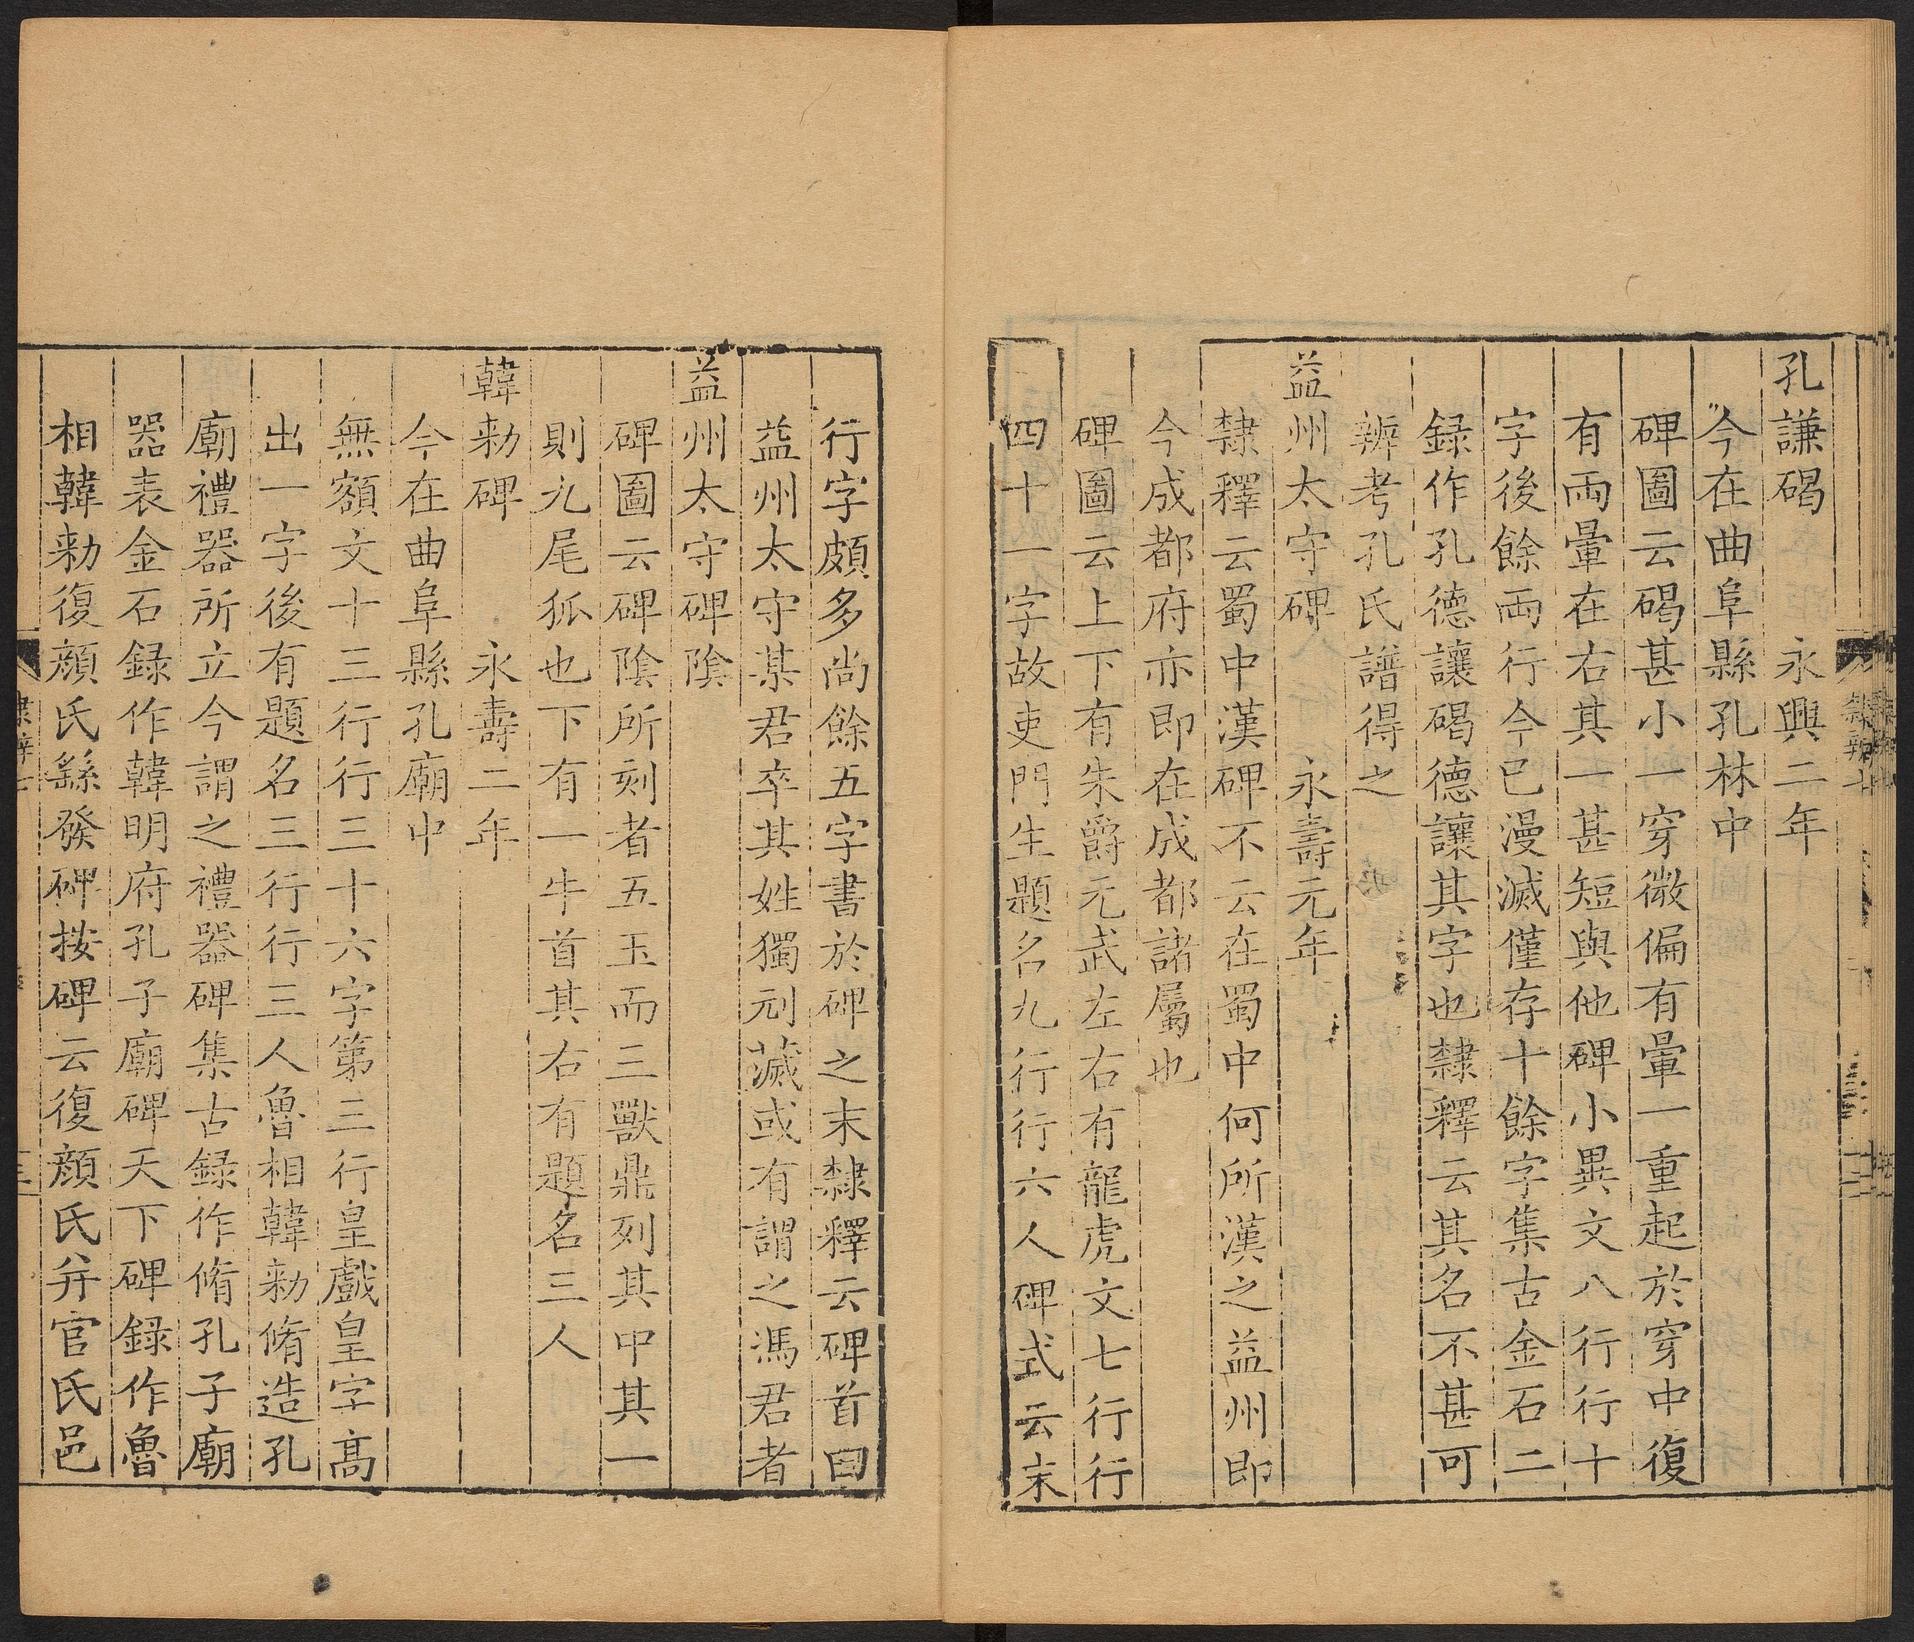 孔謙碣　永興二年
今在曲阜縣孔林中
碑圖云碣甚小一穿微偏有暈一重起於穿中復
有兩暈在右其一甚短與他碑小異文八行行十
字後餘兩行今已漫滅僅存十餘字集古金石二
録作孔德讓碣德讓其字也隸釋云其名不甚可
辨考孔氏譜得之
益州太守碑　永壽元年
隸釋云蜀中漢碑不云在蜀中何所漢之益州即
今成都府亦即在成都諸屬也
碑圖云上下有朱爵元武左右有龍虎文七行行
四十一字故吏門生題名九行行六人碑式云末
行字頗多尚餘五字書於碑之末隸釋云碑首曰
益州太守某君卒其姓獨刓滅或有謂之馮君者
益州太守碑陰
碑圖云碑陰所刻者五玉而三獸鼎列其中其一
則九尾狐也下有一牛首其右有題名三人
韓勑碑　永壽二年
今在曲阜縣孔廟中
無額文十三行行三十六字第三行皇戲皇字高
出一字後有題名三行行三人魯相韓勑脩造孔
廟禮器所立今謂之禮器碑集古録作脩孔子廟
器表金石録作韓明府孔子廟碑天下碑録作魯
相韓勑復顏氏繇發碑按碑云復顏氏并官氏邑